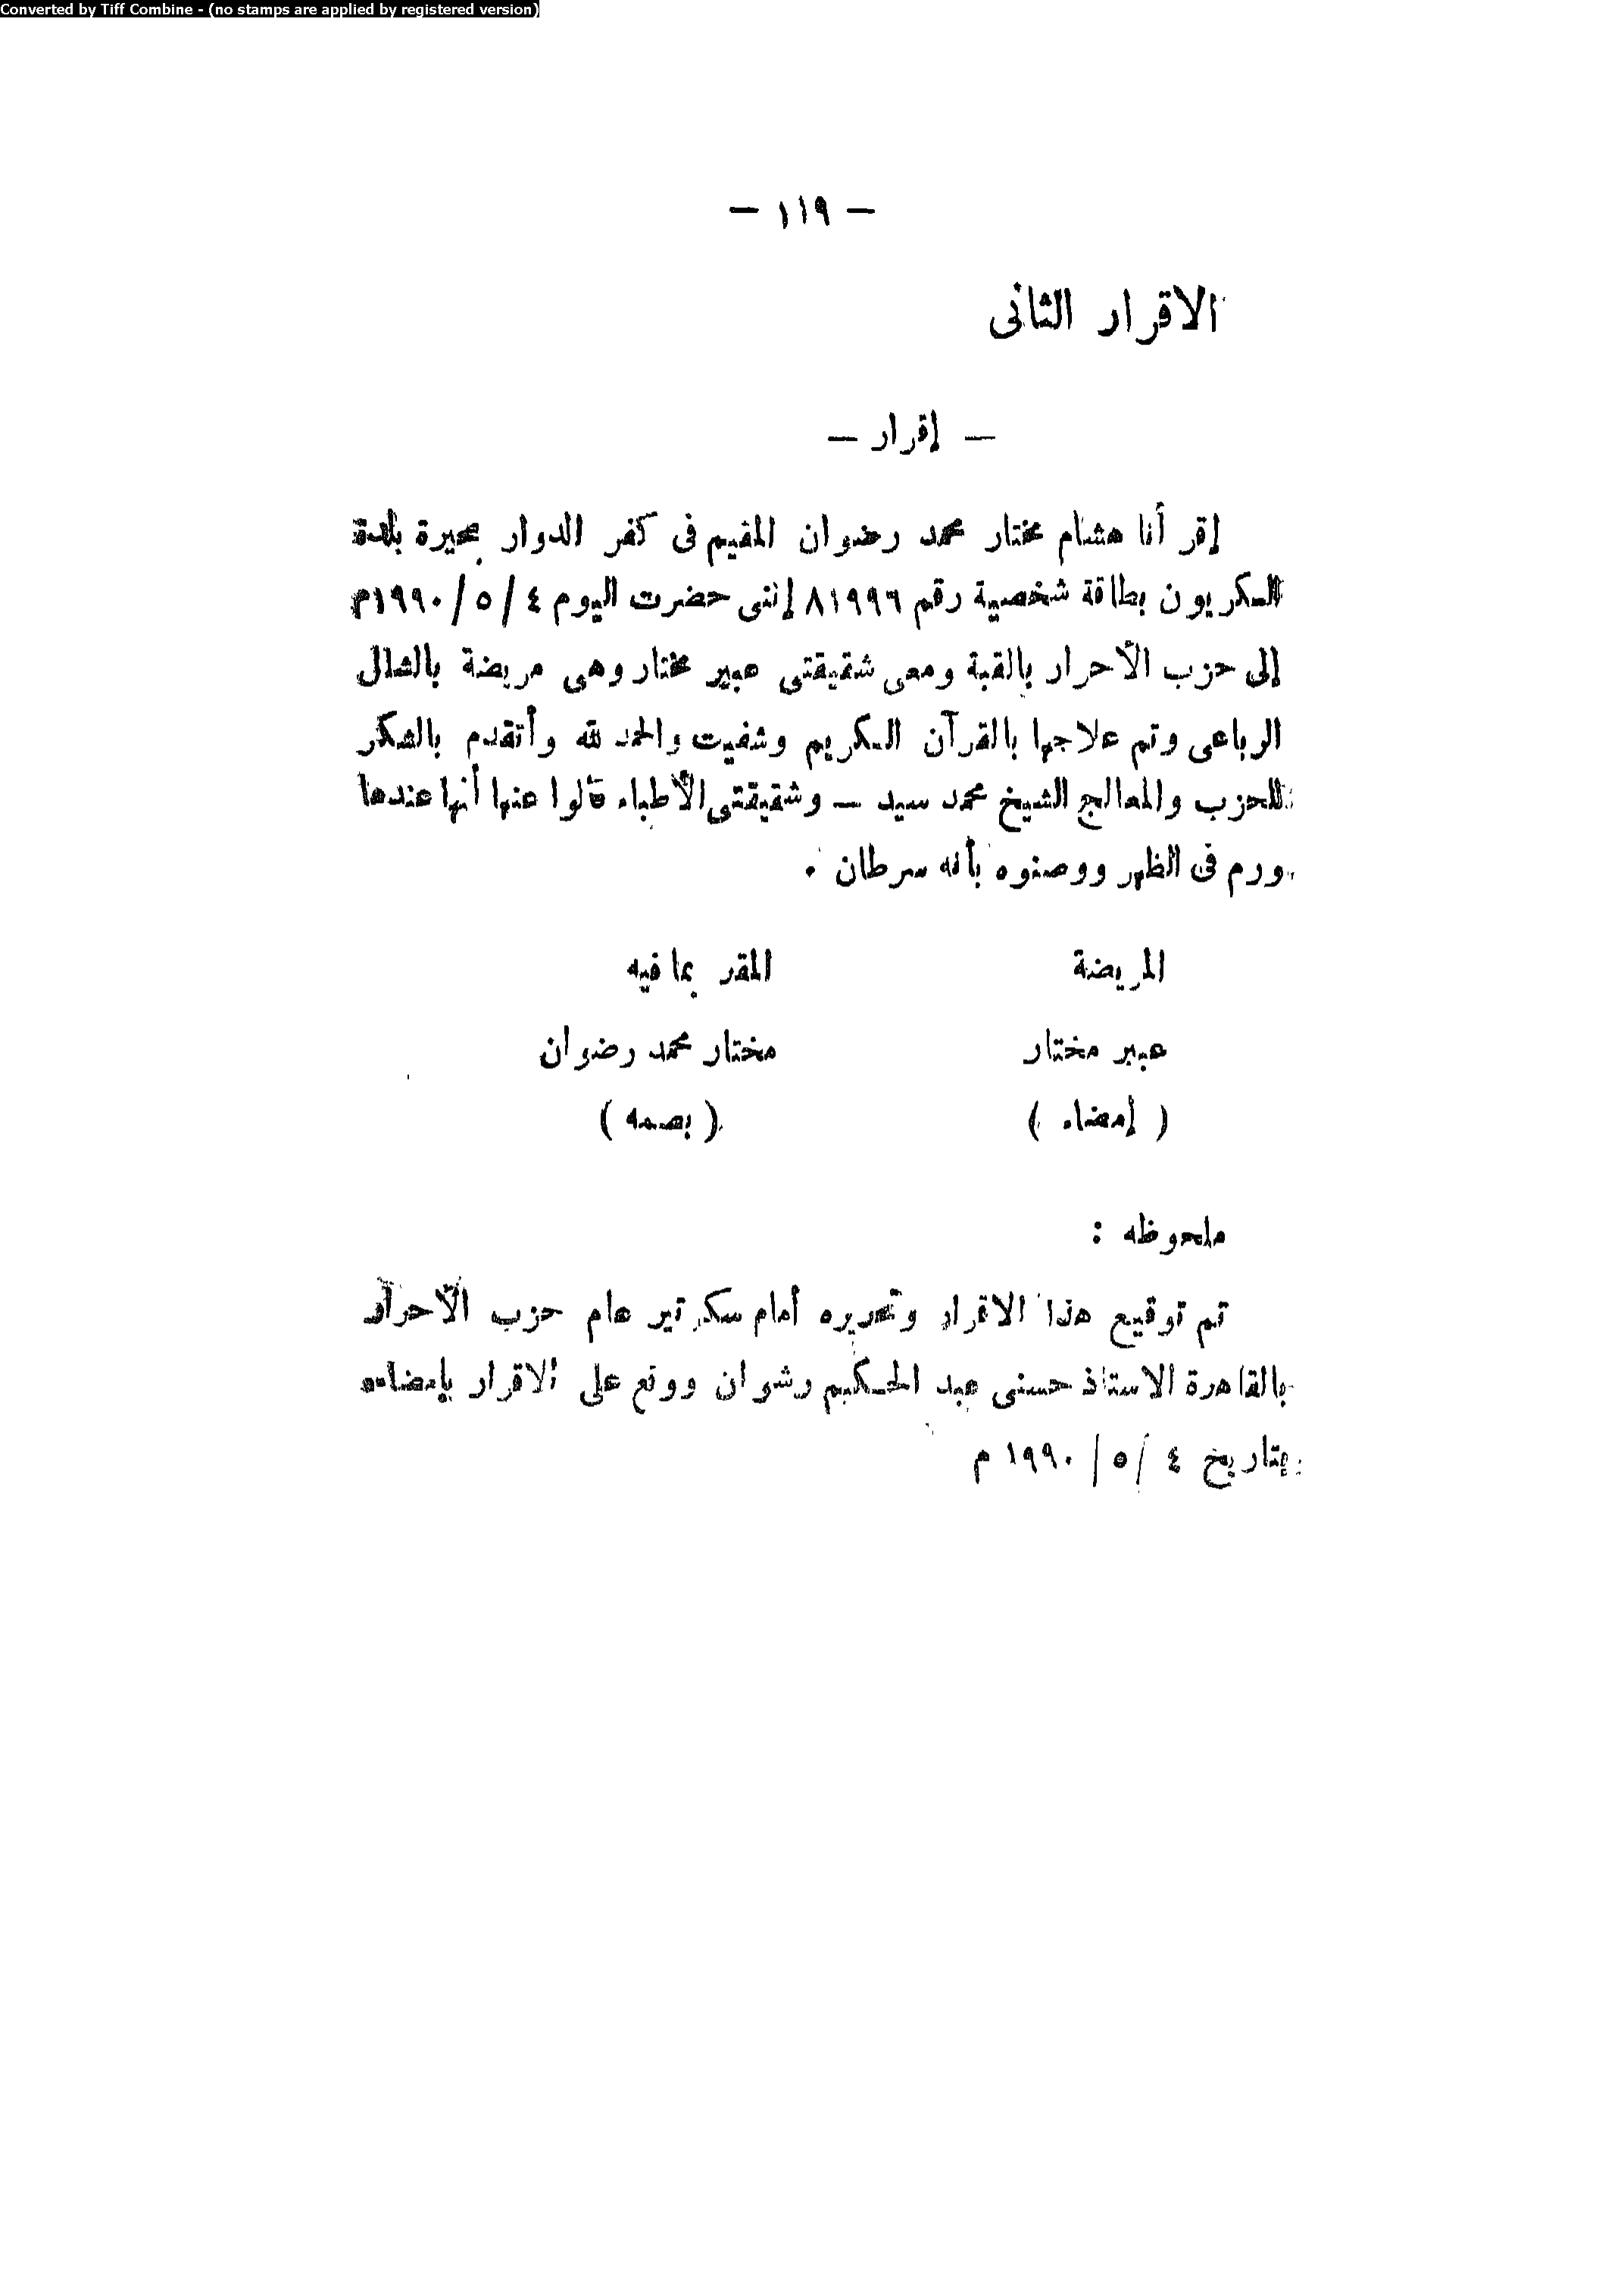 Converted by Tiff Combine - (no stamps are applied by registered version)
— ١١٩ —
الاقرار الثانى
— إقرار —
إقر أنا هشام مختار محمد رضوان المقيم فى كفر الدوار بحيرة بلدة
السكريون بطاقة شخصية رقم ٨١٩٩٦ إننى حضرت اليوم ٤ /٥ /١٩٩٠م
إلى حزب الأحرار بالقبة ومعى شقيقتى عبير مختار وهى مريضة بالشلل
الرباعى وتم علاجها بالقرآن الكريم وشفيت والحمد لله وأتقدم بالشكر
للحزب والمعالج الشيخ محمد سيد — وشقيقتى الأطباء قالوا عنها أنها عندها
ورم فى الظهر ووصفوه بأنه سرطان .
المريضة المقر بما فيه
عبير مختار مختار محمد رضوان
( إمضاء ) ( بصمه )
ملحوظه :
تم توقيع هذا الاقرار وتحريره أمام سكرتير عام حزب الأحرار
بالقاهرة الاستاذ حسنى عبد الحكيم رشوان ووقع على الاقرار بإمضاءه
بتاريخ ٤ /٥ /١٩٩٠ م